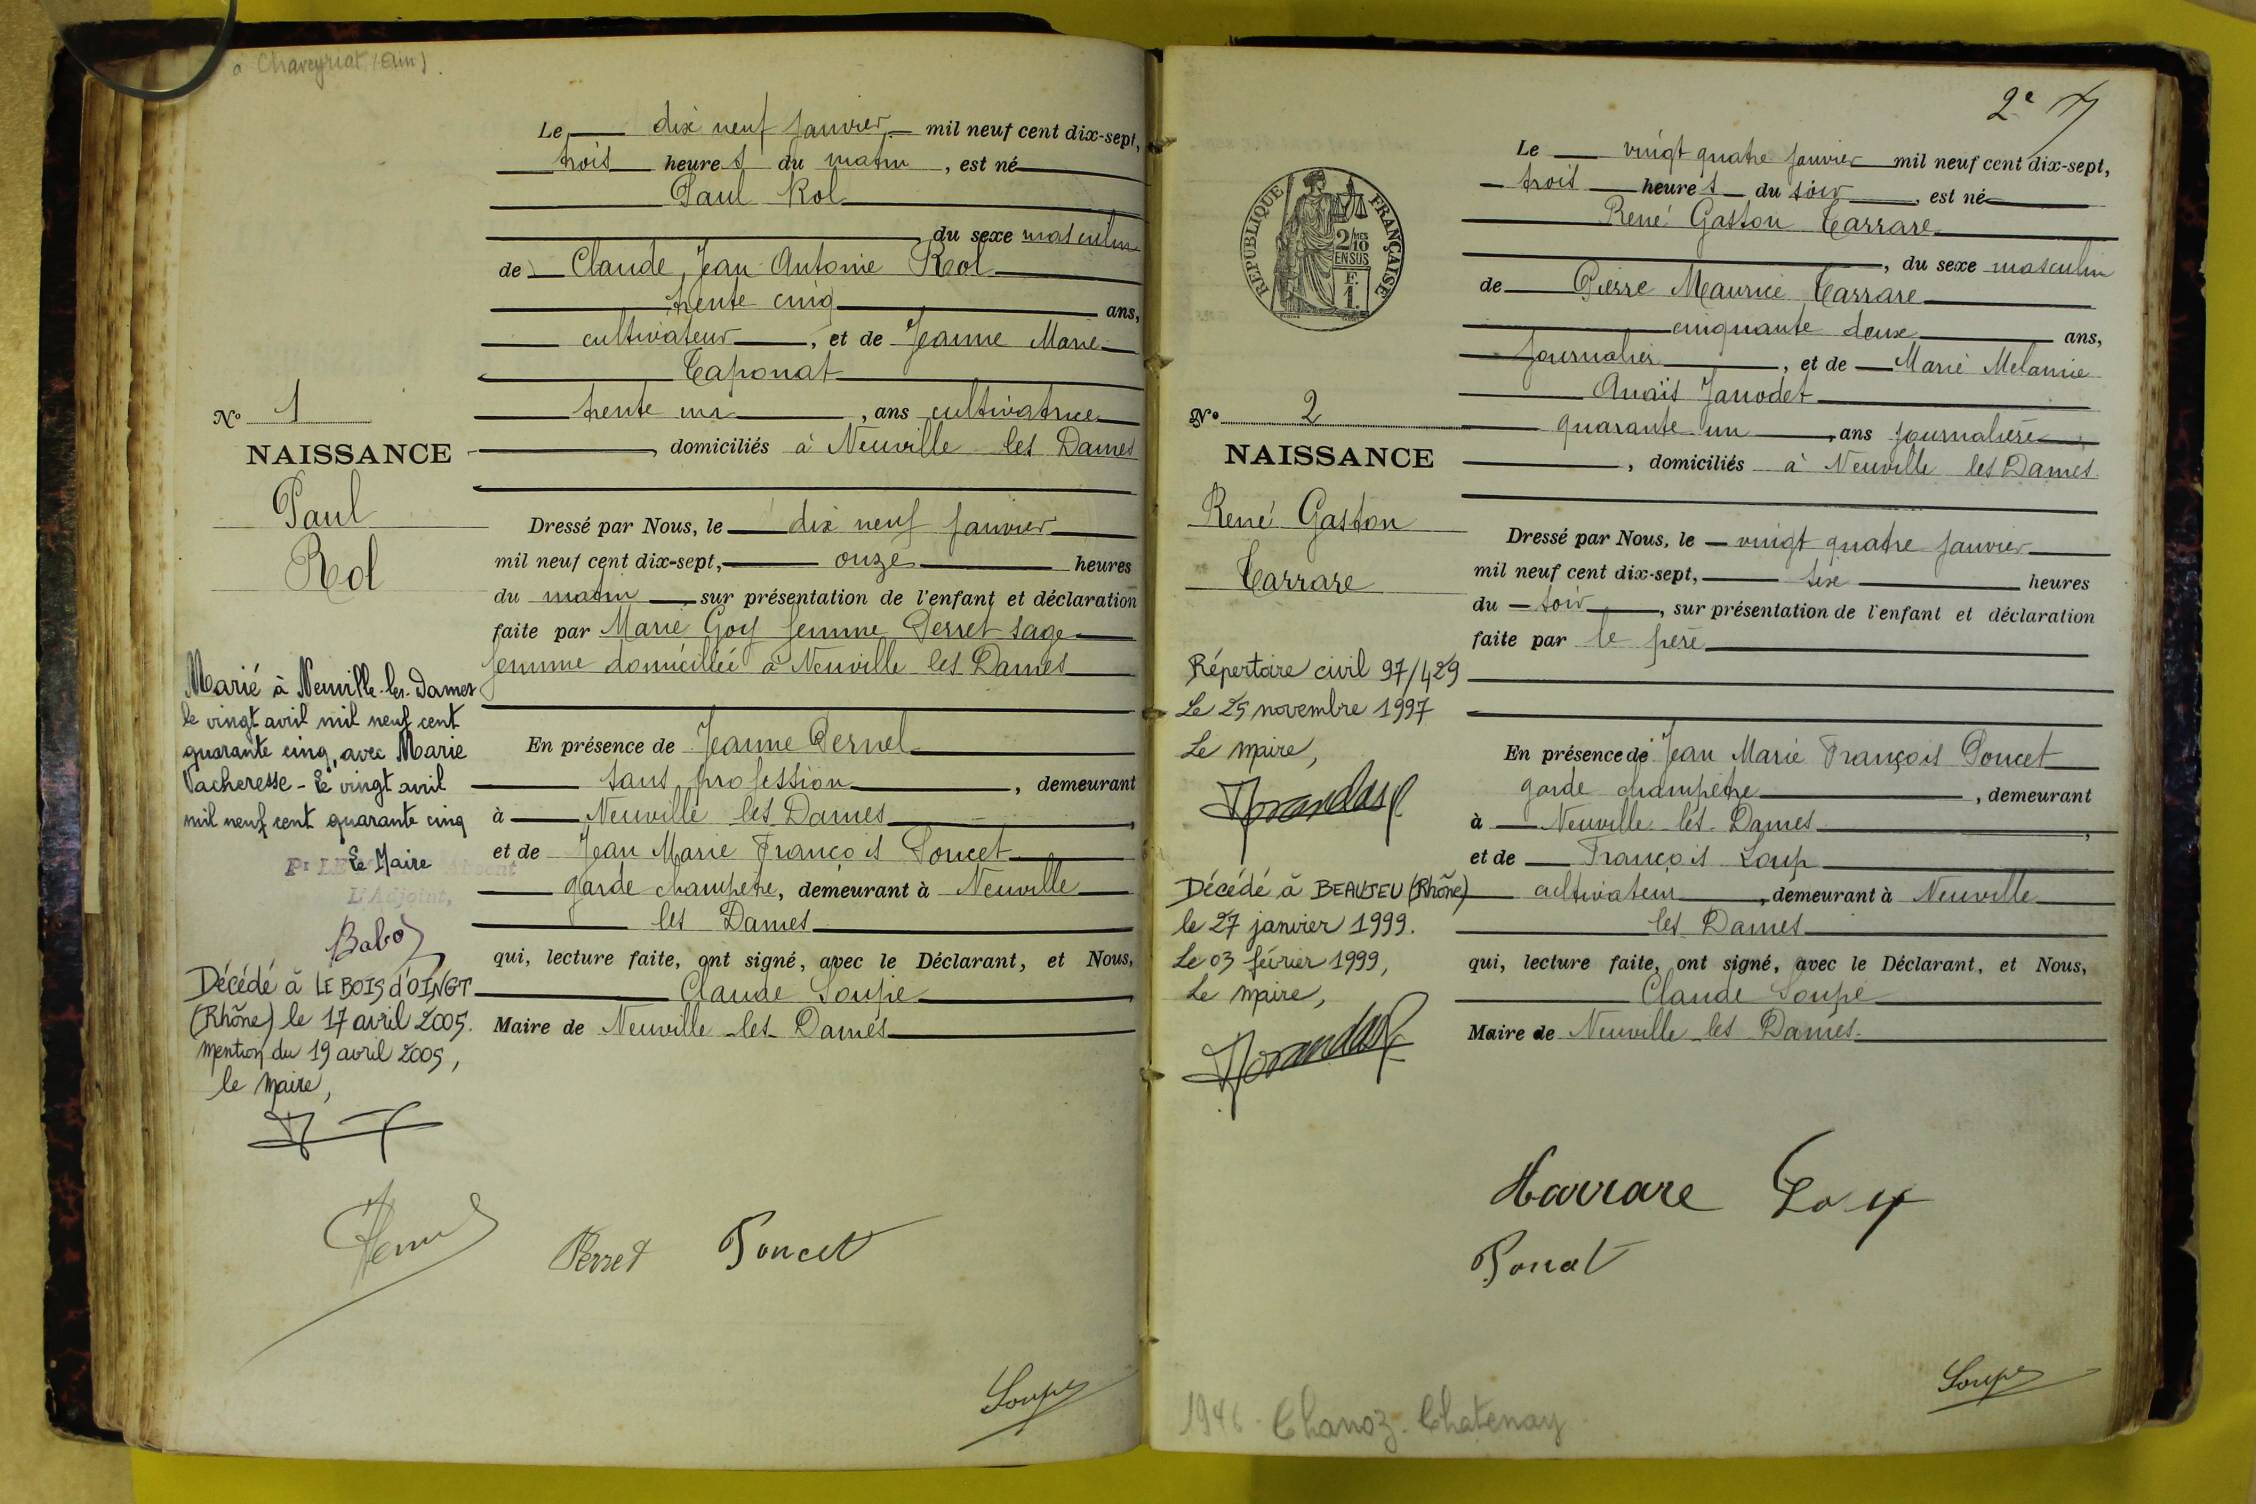 à Chaveyriat (Ain).
Le dix neuf janvier mil neuf cent dix-sept,
trois heures du matin, est né
Paul Rol
du sexe masculin
de Claude Jean Antonie Rol
trente cinq ans,
cultivateur, et de Jeanne Marie
Taponat
trente un, ans cultivatrice
, domiciliés à Neuville les Dames
Nº 1
NAISSANCE
Paul
Rol
Dressé par Nous, le dix neuf janvier
mil neuf cent dix-sept, onze heures
du matin, sur présentation de l'enfant et déclaration
faite par Marie Goy femme Perret sage
femme domiciliée à Neuville les Dames
En présence de Jeanne Pernel
sans profession, demeurant
à Neuville les Dames,
et de Jean Marie François Poncet
garde champêtre, demeurant à Neuville
les Dames
qui, lecture faite, ont signé, avec le Déclarant, et Nous,
Claude Soupe,
Maire de Neuville les Dames
Marié à Neuville-les-Dames
le vingt avril mil neuf cent
quarante cinq, avec Marie
Vacheresse - Le vingt avril
mil neuf cent quarante cinq
Le Maire
Pr LE Absent
L'Adjoint,
Décédé à LE BOIS d'OINGT
(Rhône) le 17 avril 2005.
mention du 19 avril 2005,
le Maire,
Perret Poncet
Soupe
2e
Le vingt quatre janvier mil neuf cent dix-sept,
trois heures du soir, est né
René Gaston Carrare
, du sexe masculin
de Pierre Maurice Carrare
cinquante deux ans,
journalier, et de Marie Melanie
Anaïs Janodet
quarante un, ans journalière
, domiciliés à Neuville les Dames
RÉPUBLIQUE FRANÇAISE
2/10 MES
EN SUS
F.
1.
Nº 2
NAISSANCE
René Gaston
Carrare
Dressé par Nous, le vingt quatre janvier
mil neuf cent dix-sept, six heures
du soir, sur présentation de l'enfant et déclaration
faite par le père
En présence de Jean Marie François Poncet
garde champêtre, demeurant
à Neuville les Dames,
et de François Loup
cultivateur, demeurant à Neuville
les Dames
qui, lecture faite, ont signé, avec le Déclarant, et Nous,
Claude Soupe
Maire de Neuville les Dames.
Répertoire civil 97/429
Le 25 novembre 1997
Le Maire,
Décédé à BEAUJEU (Rhône)
le 27 janvier 1999.
Le 03 février 1999,
Le Maire,
Carrare
Soupe
1946 - Chanoz-Chatenay